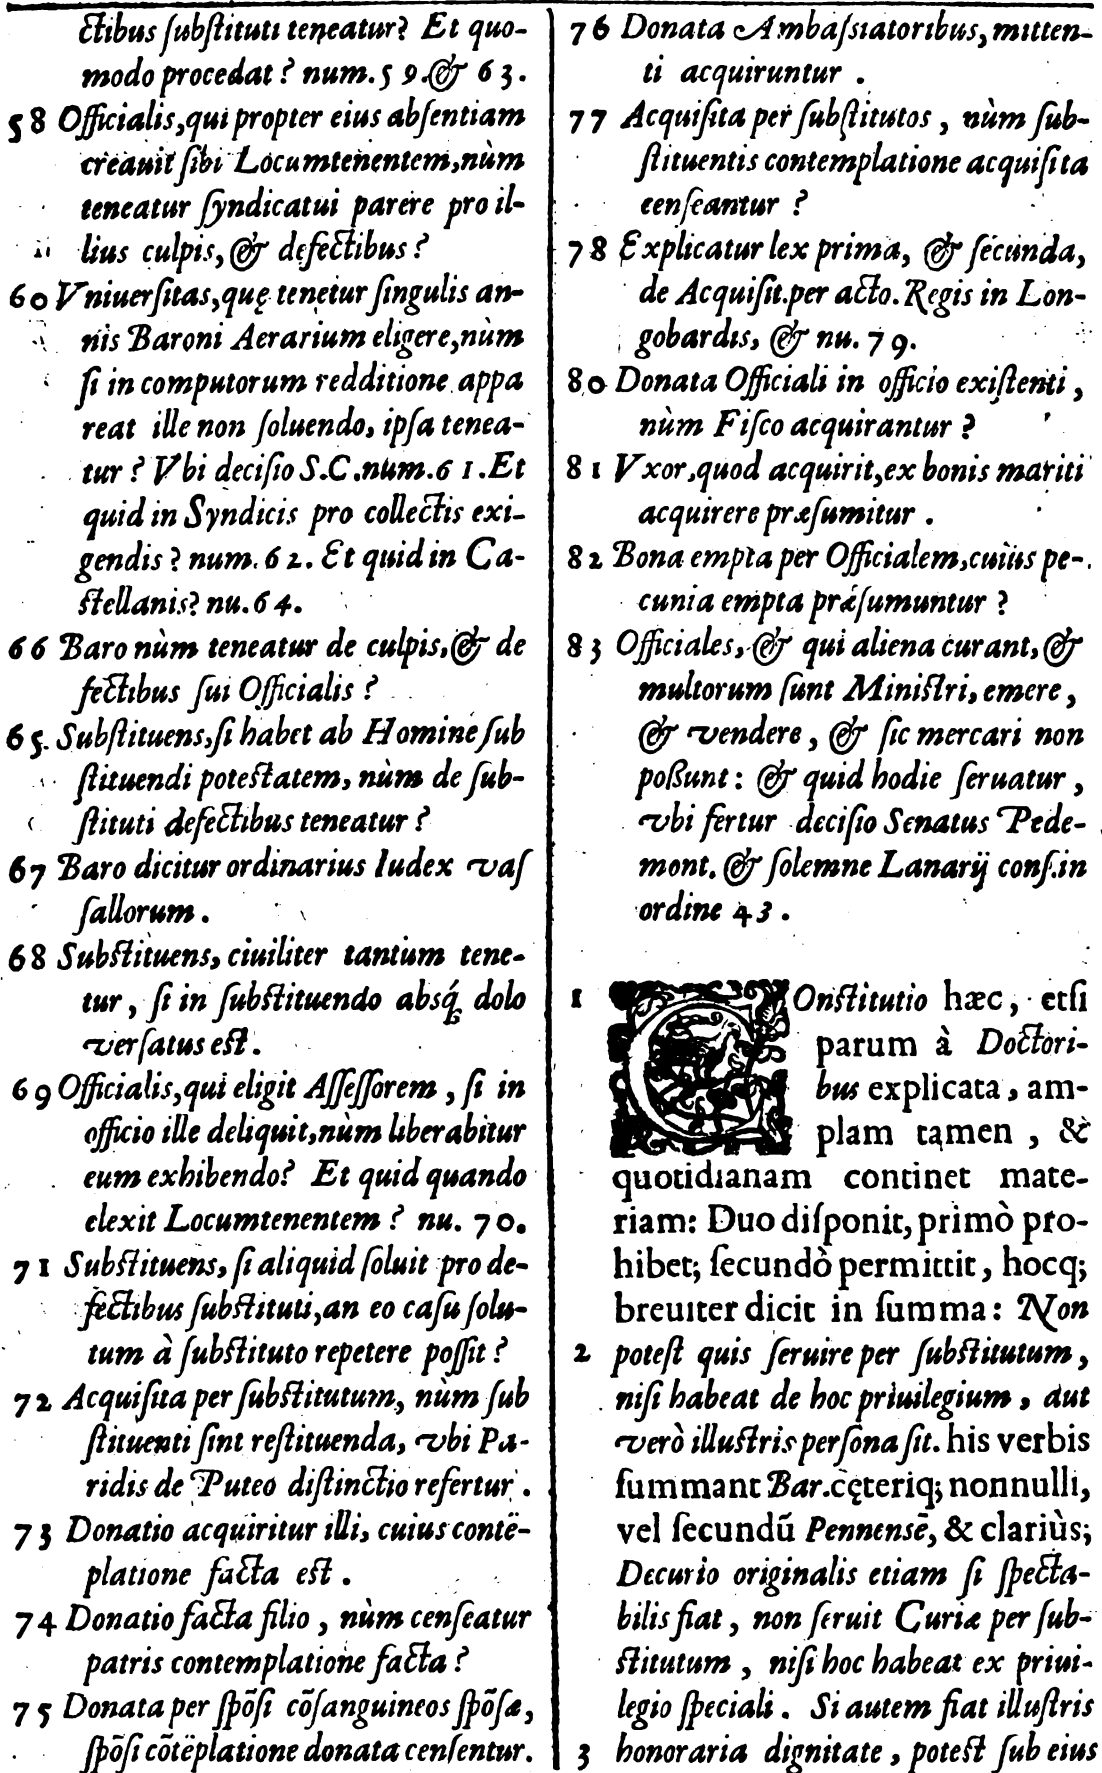 ctibus ſubſtituti teneatur? Et quo-
modo procedat? num.59.& 63.
58 Officialis,qui propter eius abſentiam
creauit ſibi Locumtenentem,nùm
teneatur ſyndicatui parere pro il-
lius culpis, & defectibus?
60 Vniuerſitas,quę tenetur ſingulis an-
nis Baroni Aerarium eligere,nùm
ſi in computorum redditione appa
reat ille non ſoluendo, ipſa tenea-
tur? Vbi deciſio S.C.num.61.Et
quid in Syndicis pro collectis exi-
gendis? num.62. Et quid in Ca-
ſtellanis? nu.64.
66 Baro nùm teneatur de culpis,& de
fectibus ſui Officialis?
65. Subſtituens,ſi habet ab Homine ſub
ſtituendi poteſtatem, nùm de ſub-
ſtituti defectibus teneatur?
67 Baro dicitur ordinarius Iudex vaſ
ſallorum.
68 Subſtituens, ciuiliter tantum tene-
tur, ſi in ſubſtituendo abſq́; dolo
verſatus eſt.
69 Officialis,qui eligit Aſſeſſorem, ſi in
officio ille deliquit,nùm liberabitur
eum exhibendo? Et quid quando
elexit Locumtenentem? nu. 70.
71 Subſtituens, ſi aliquid ſoluit pro de-
fectibus ſubſtituti,an eo caſu ſolu-
tum à ſubſtituto repetere poſſit?
72 Acquiſita per ſubſtitutum, nùm ſub
ſtituenti ſint reſtituenda, vbi Pa-
ridis de Puteo diſtinctio refertur.
73 Donatio acquiritur illi, cuius contē-
platione facta eſt.
74 Donatio facta filio, nùm cenſeatur
patris contemplatione facta?
75 Donata per ſpōſi cōſanguineos ſpōſæ,
ſpōſi cōtēplatione donata cenſentur.
76 Donata Ambaſsiatoribus, mitten-
ti acquiruntur.
77 Acquiſita per ſubſtitutos, nùm ſub-
ſtituentis contemplatione acquiſita
cenſeantur?
78 Explicatur lex prima, & ſecunda,
de Acquiſit.per acto.Regis in Lon-
gobardis, & nu. 79.
80 Donata Officiali in officio exiſtenti,
nùm Fiſco acquirantur?
81 Vxor,quod acquirit,ex bonis mariti
acquirere præſumitur.
82 Bona empta per Officialem,cuius pe-
cunia empta præſumuntur?
83 Officiales, & qui aliena curant, &
multorum ſunt Miniſtri, emere,
& vendere, & ſic mercari non
poßunt: & quid hodie ſeruatur,
vbi fertur deciſio Senatus Pede-
mont. & ſolemne Lanarij conſ.in
ordine 43.
1 COnſtitutio hæc, etſi
parum à Doctori-
bus explicata, am-
plam tamen, &
quotidianam continet mate-
riam: Duo diſponit, primò pro-
hibet; ſecundò permittit, hocq;
breuiter dicit in ſumma: Non
2 poteſt quis ſeruire per ſubſtitutum,
niſi habeat de hoc priuilegium, aut
verò illuſtris perſona ſit. his verbis
ſummant Bar.cęteriq; nonnulli,
vel ſecundū Pennensē, & clariùs;
Decurio originalis etiam ſi ſpecta-
bilis fiat, non ſeruit Curiæ per ſub-
ſtitutum, niſi hoc habeat ex priui-
legio ſpeciali. Si autem fiat illuſtris
3 honoraria dignitate, poteſt ſub eius